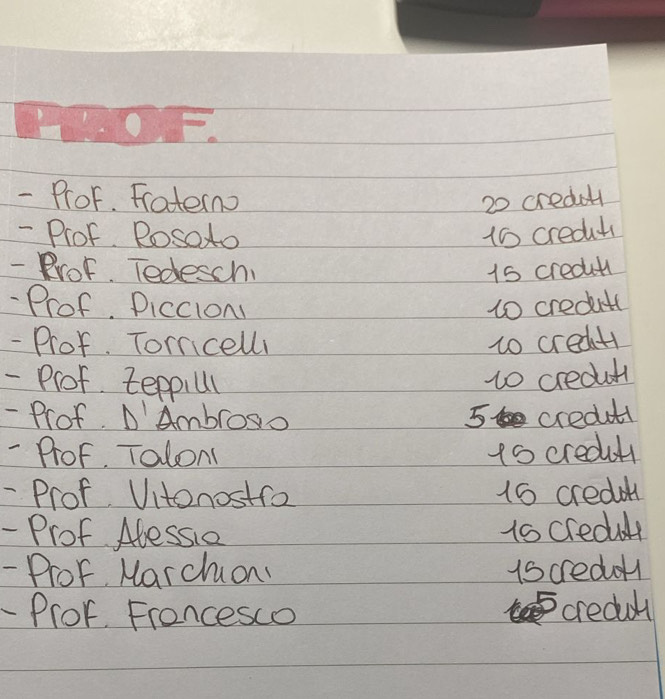 PROF.
- Prof. Fraterno 20 crediti
- Prof. Rosato 15 crediti
- Prof. Tedeschi 15 crediti
- Prof. Piccioni 10 crediti
- Prof. Torricelli 10 crediti
- Prof. Zeppilli 10 crediti
- Prof. D'Ambrosio 5 crediti
- Prof. Taloni 15 crediti
- Prof. Vitanostra 15 crediti
- Prof. Alessia 15 crediti
- Prof. Marchioni 15 crediti
- Prof. Francesco 5 crediti